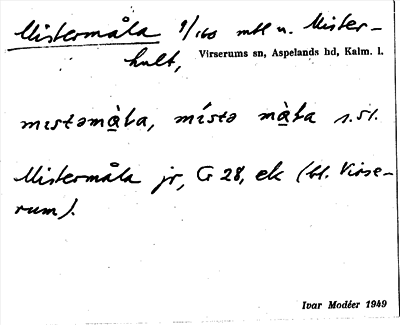 Mistermåla 1/160 mtl u. Mister-
hult,
Virserums sn, Aspelands hd, Kalm. l.
mıstəmà̱ɫa, místə nà̱ɫa s.st.
Mistermåla jr, G 28, ek (bl. Virse-
rum).
Ivar Modéer 1949